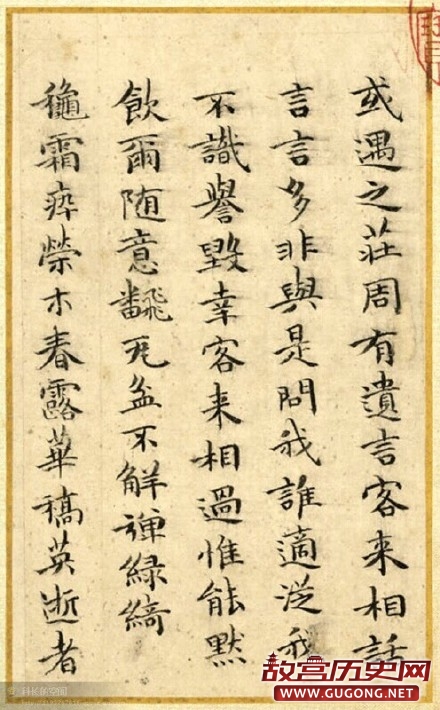 或遇之莊周有遺言客来相話
言言多非與是問我誰適從我
不識譽毀幸客来相過惟能默
飲爾随意飜瓦盆不解彈綠綺
龝霜瘁榮木春露華稿英逝者
故宫历史网
WWW.GUGONG.NET